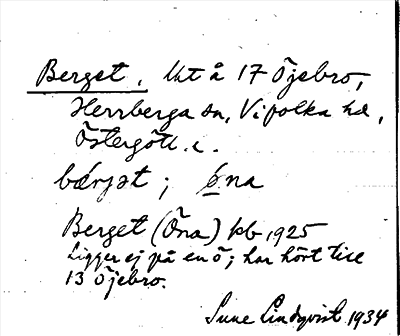 Berget. Utå 17 Öjebro,
Herrberga sn, Vifolka hd,
Östergötl. l.
bǽrjət; ø̄na
Berget (Öna) kb 1925
Ligger ej på en ö; har hört till
13 Öjebro.
Sune Lindqvist 1934